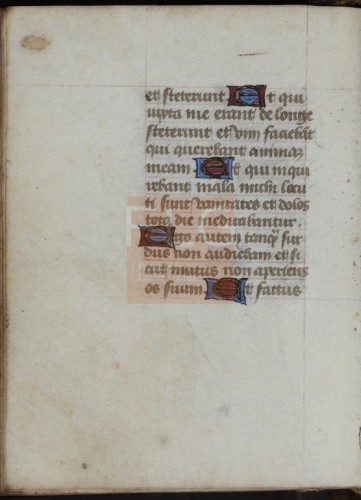 et steterunt Et qui
iuxta me erant de longe
steterunt et vim faciebāt
qui querebant animaz
meam Et qui inqui
rebant mala michi locu
ti sunt vanitates et dolos
tota die meditabantur.
Ego autem tanq̄ sur
dus non audiebam et si
cut mutus non aperiens
os suum Et factus